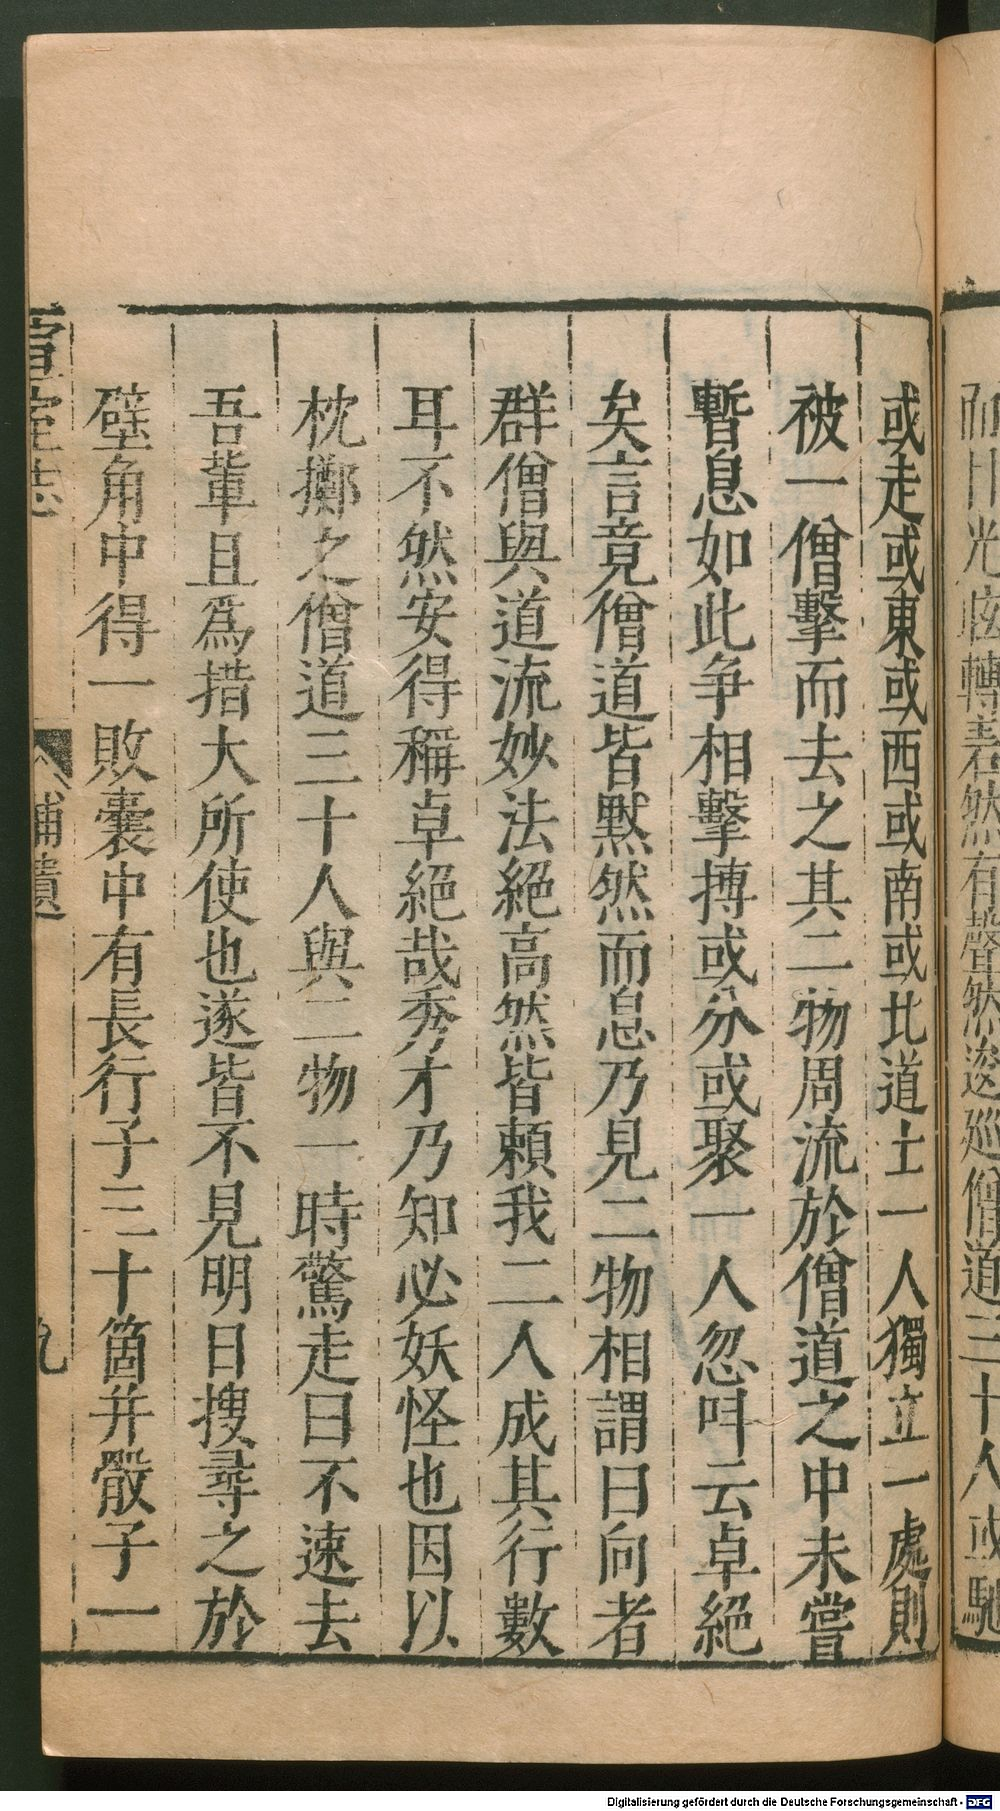 轉 然有聲 然逡廵僧道三十人或馳
或走或東或西或南或北道士一人獨立一處則
被一僧擊而去之其二物周流於僧道之中未嘗
暫息如此争相擊搏或分或聚一人忽呌云卓絕
矣言竟僧道皆默然而息乃見二物相謂曰向者
群僧與道流妙法絕高然皆賴我二人成其行數
耳不然安得稱卓絕哉秀才乃知必妖怪也因以
枕擲之僧道三十人與二物一時驚走曰不速去
吾輩且爲措大所使也遂皆不見明日搜尋之於
壁角中得一敗囊中有長行子三十箇并骰子一
宣室志
補遺
九
Digitalisierung gefördert durch die Deutsche Forschungsgemeinschaft - DFG